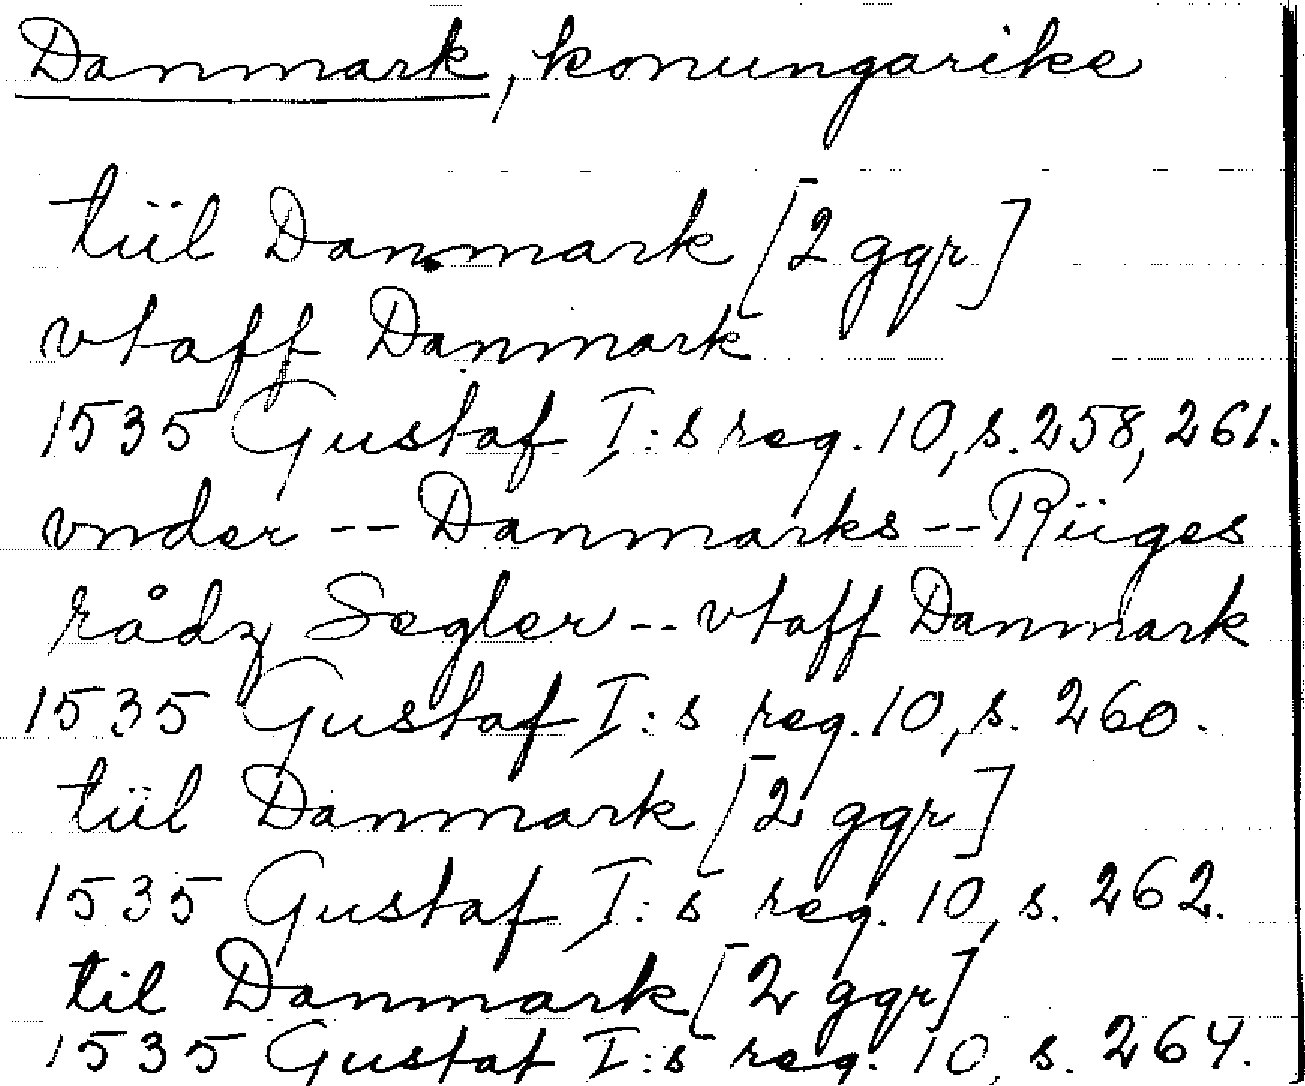 Danmark, konungarike
tiil Danmark [2 ggr]
vtaff Danmark
1535 Gustaf I:s reg. 10, s. 258, 261.
vnder -- Danmarks -- Riiges
rådz Segler -- vtaff Danmark
1535 Gustaf I:s reg. 10, s. 260.
tiil Danmark [2 ggr]
1535 Gustaf I:s reg. 10, s. 262.
til Danmark [2 ggr]
1535 Gustaf I:s reg. 10, s. 264.